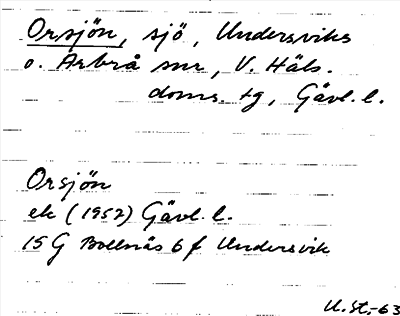 Orsjön, sjö, Undersviks
o. Arbrå snr, V. Häls.
doms. tg, Gävl. l.
Orsjön
ek (1952) Gävl. l.
15 G Bollnäs 6 f Undersvik
U.St.-63